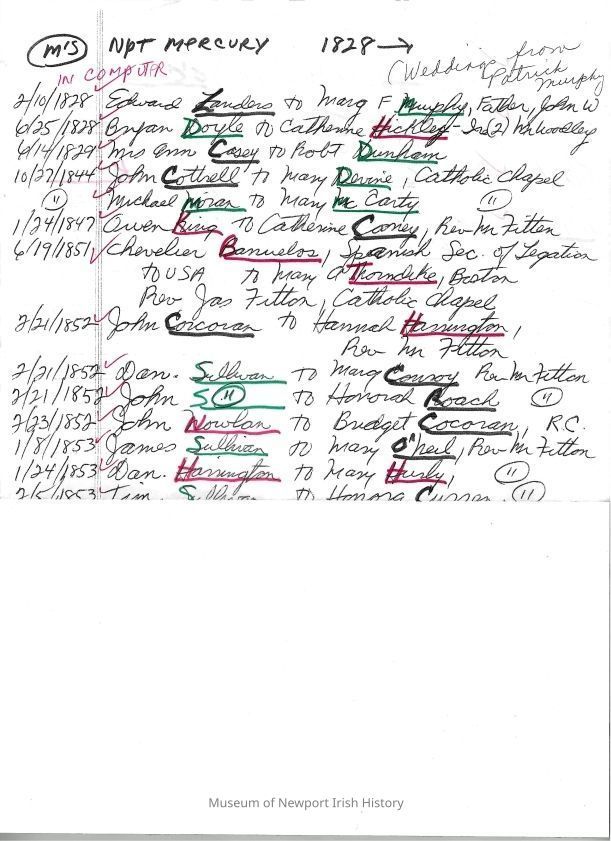 M'S NPT MERCURY 1828 →
IN COMPUTER
(Weddings from
Patrick
Murphy
2/10/1828 Edward Landers to Marg F Murphy, Father, John W
6/25/1828 Bryan Doyle to Catherine Hickley - Ire (2) Mr Woolley
6/14/1829 Mrs Ann Casey to Robt Dunham
10/27/1844 John Cottrell to Mary Devine, Catholic Chapel
(11) Michael Moran to Mary McCarty (11)
1/24/1847 Owen King to Catherine Carney, Rev Mr Fitton
6/19/1851 Chevelier Banuelos, Spanish Sec. of Legation
to USA to Mary A Thorndike, Boston
Rev Jas Fitton, Catholic Chapel
2/21/1852 John Corcoran to Hannah Harrington,
Rev Mr Fitton
2/21/1852 Dan. Sullivan to Marg Conroy Rev Mr Fitton
2/21/1852 John S (11) to Honorah Roach (11)
2/23/1852 John Nowlan to Bridget Cocoran, R.C.
1/8/1853 James Sullivan to Mary O'Neil, Rev Mr Fitton
1/24/1853 Dan. Harrington to Mary Hurly, (11)
2/5/1853 Tim Sullivan to Honora Curran (11)
Museum of Newport Irish History